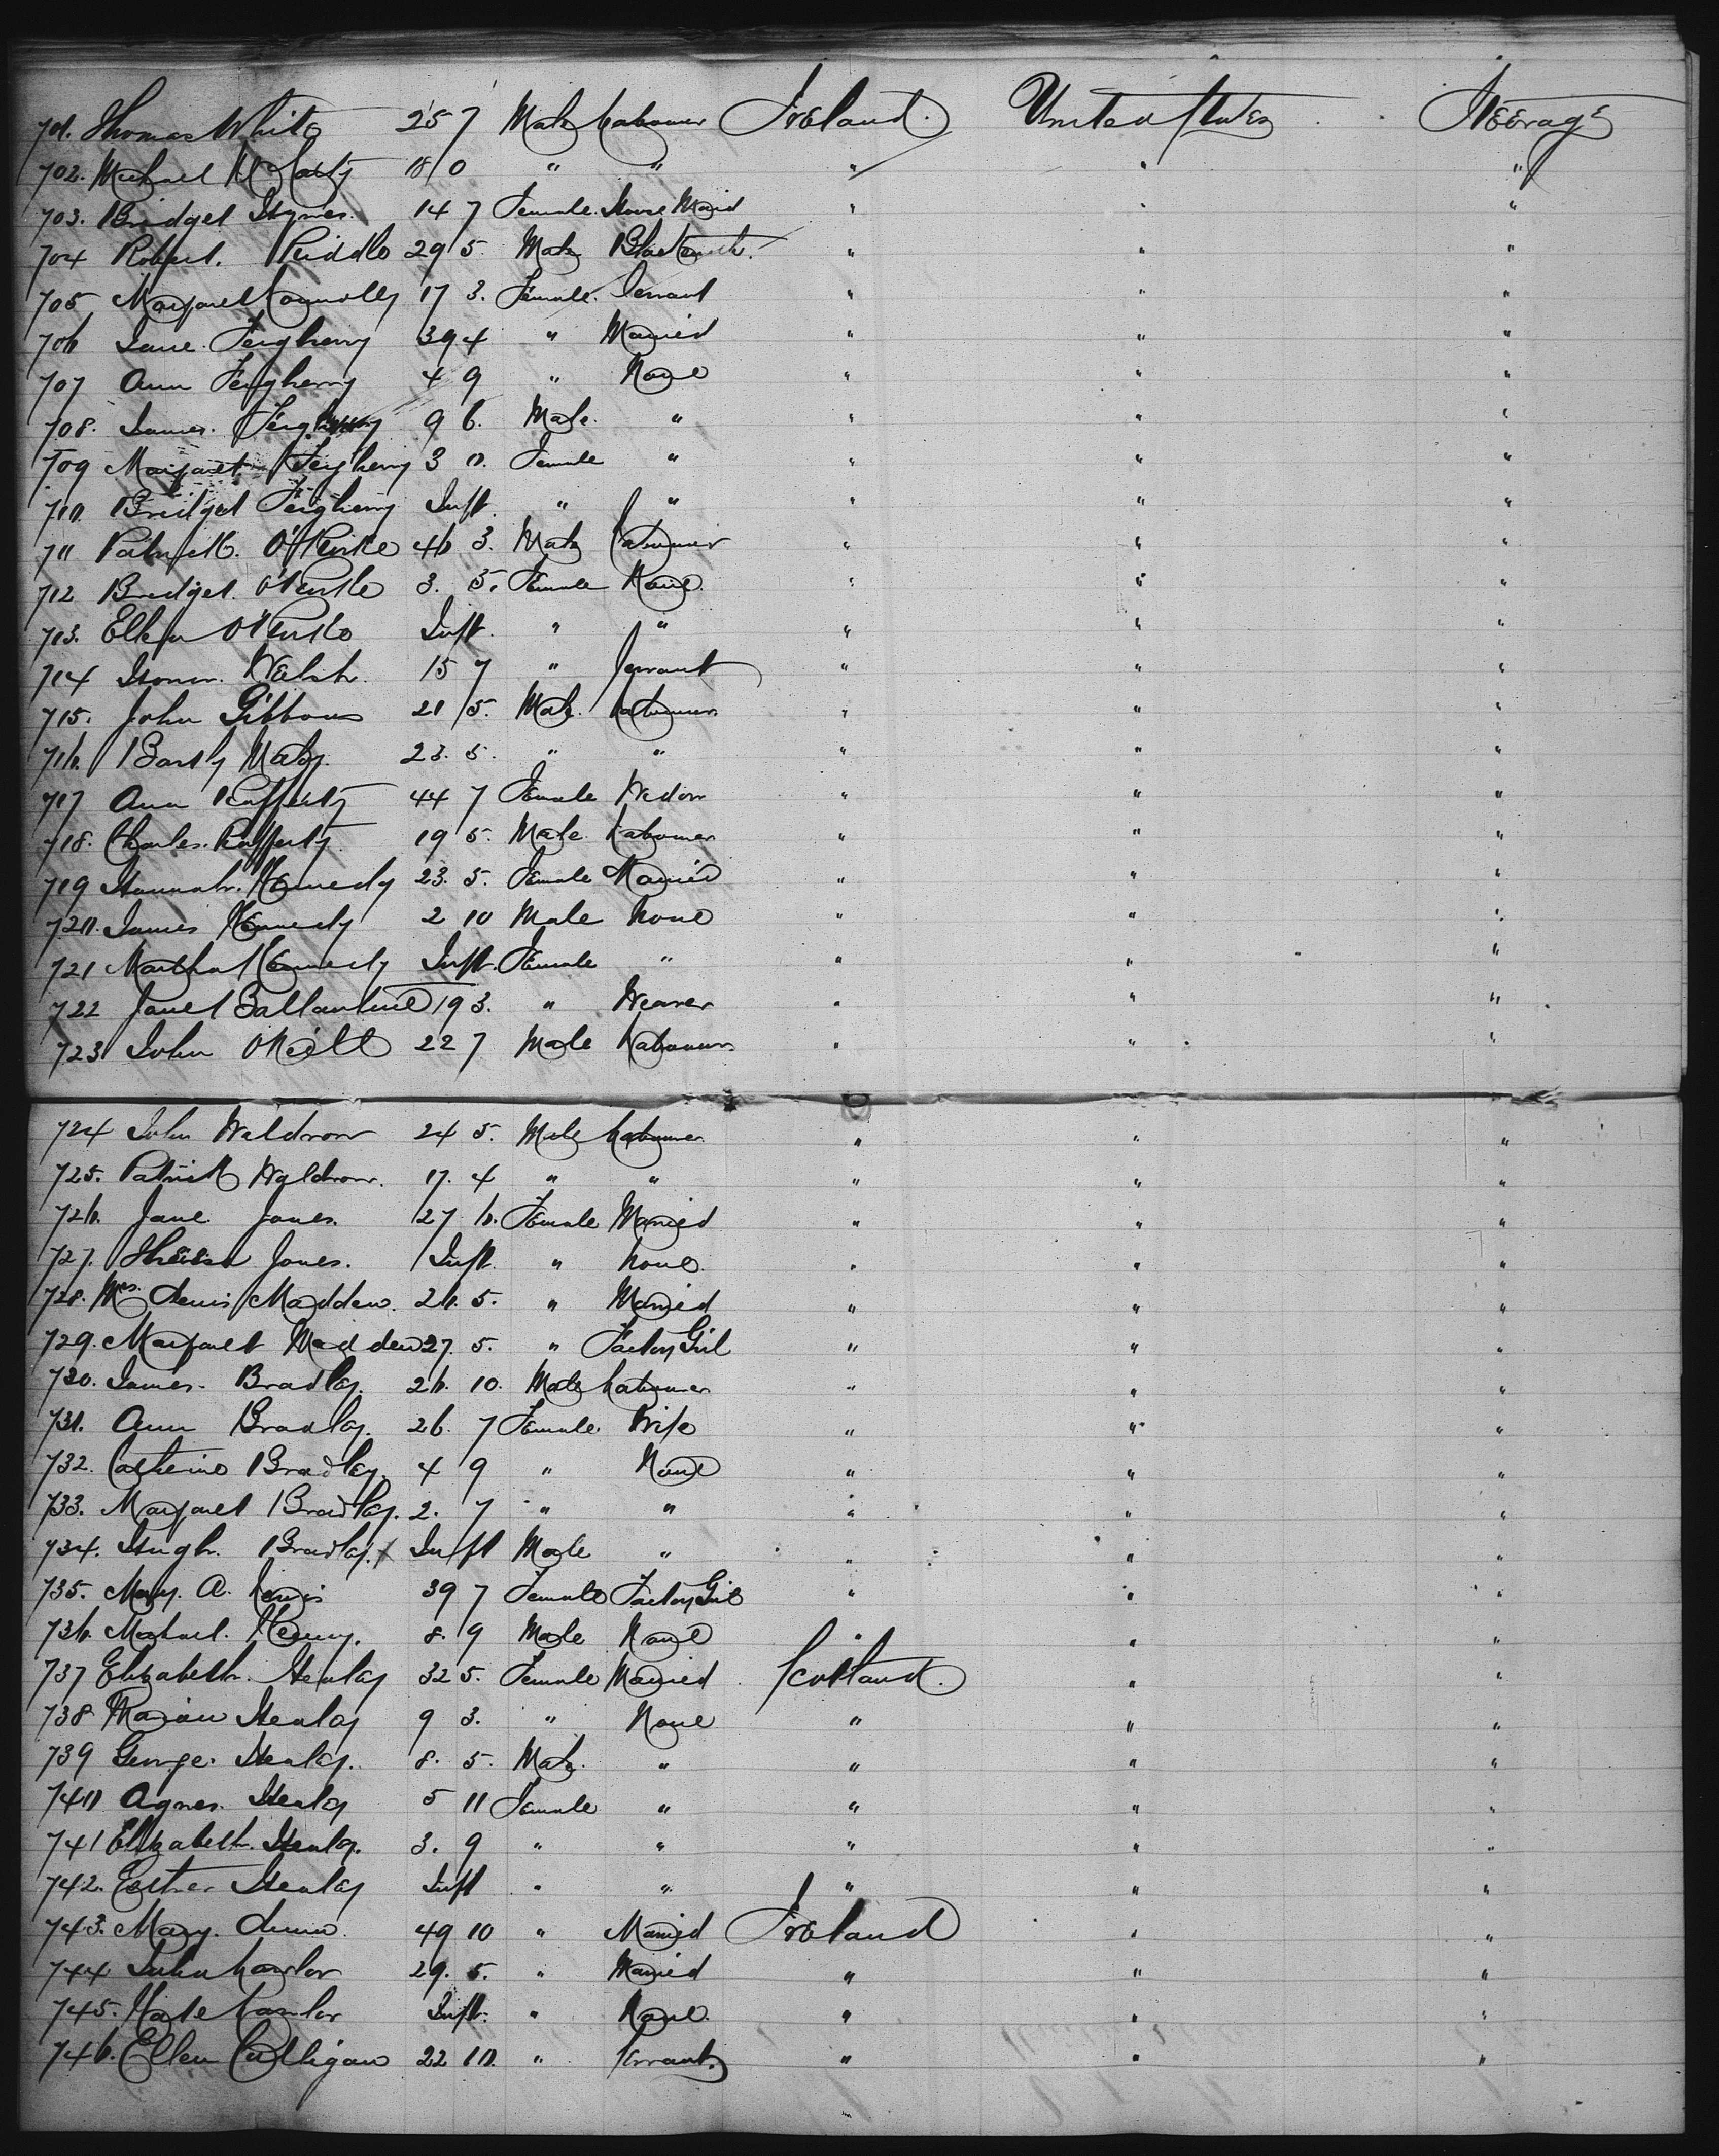 701. Thomas White 25 7 Male Labourer Ireland. United States Steerage
702. Michael McCarty 18 0 " " " " "
703. Bridget Hynes. 14 7 Female. House Maid " " "
704 Robert. Riddle 29 5. Male Blacksmith. " " "
705 Margaret Connolly 17 3. Female. Servant " " "
706 Jane Feigherry 39 4 " Married " " "
707 Ann Feigherry 4 9 " None " " "
708. James. 9 6. Male. " " " "
709 Margaret Feigherry 3 0. Female " " " "
710 Bridget Feigherry Inft. " " " " "
711 Patrick. O'Rurke 46 3. Male Labourer " " "
712 Bridget. O'Rurke 3. 5. Female None. " " "
713. Ellen O'Rurke Inft. " " " " "
714 Honor. Welsh. 15 7 " Servant " " "
715. John Gibbons 21 5. Male. Labourer " " "
716. Bartly 23. 5. " " " " "
717 Ann Rafferty 44 7 Female Widow " " "
718. Charles. Rafferty. 19 5. Male Labourer " " "
719 Hannah. Kennedy 23. 5. Female Married " " "
720. James Kennedy 2 10 Male None " " "
721 Martha Kennedy Inft. Female " " " "
722 Janet Ballantine 19 3. " Weaver " " "
723 John O'Neill 22 7 Male Labourer " " "
724 John Waldron 24 5. Male Labourer " " "
725. Patrick Waldron. 17. 4 " " " " "
726. Jane Jones. 27 6. Female Married " " "
727. Jones. Inft. " None. " " "
728. Mrs. Madden. 20. 5. " Married " " "
729. Margaret Madden 27. 5. " Factory Girl " " "
730. James. Bradley. 26. 10. Male Labourer " " "
731. Ann Bradley. 26. 7 Female. Wife " " "
732. Catherine Bradley. 4 9 " None " " "
733. Margaret Bradley. 2. 7 " " " " "
734. Hugh. Bradley. x Inft Male " " " "
735. Mary. A. Lewis 39 7 Female Factory Girl " " "
736. Michael. Kenny. 8. 9 Male None " " "
737 Elizabeth. Henley 32 5. Female Married Scotland. " "
738 Marion Henley 9 3. " None " " "
739 George. Henley. 8. 5. Male. " " " "
740 Agnes. Henley 5 11 Female " " " "
741 Elizabeth. Henley. 3. 9 " " " " "
742. Esther Henley Inft " " " " "
743. Mary. Dunn 49 10 " Married Ireland " "
744 Julia Lawlor 29. 5. " Married " " "
745. Kate Lawlor Inft. " None. " " "
746. Ellen Culligan 22 10. " Servant. " " "